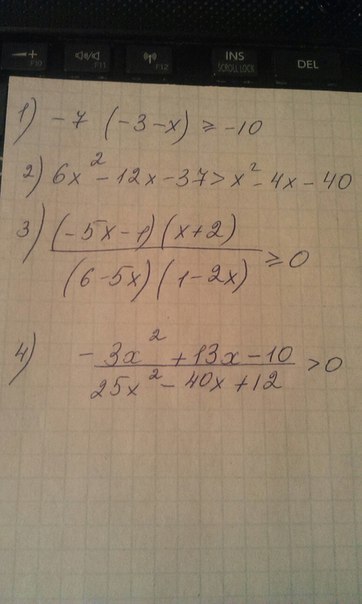 F10 F11 F12 INS SCROLL LOCK DEL
1) -7 (-3-x) ≥ -10
2) 6x² - 12x - 37 > x² - 4x - 40
3) (-5x-1)(x+2)
(6-5x)(1-2x) ≥ 0
4) - 3x² + 13x - 10
25x² - 40x + 12 > 0